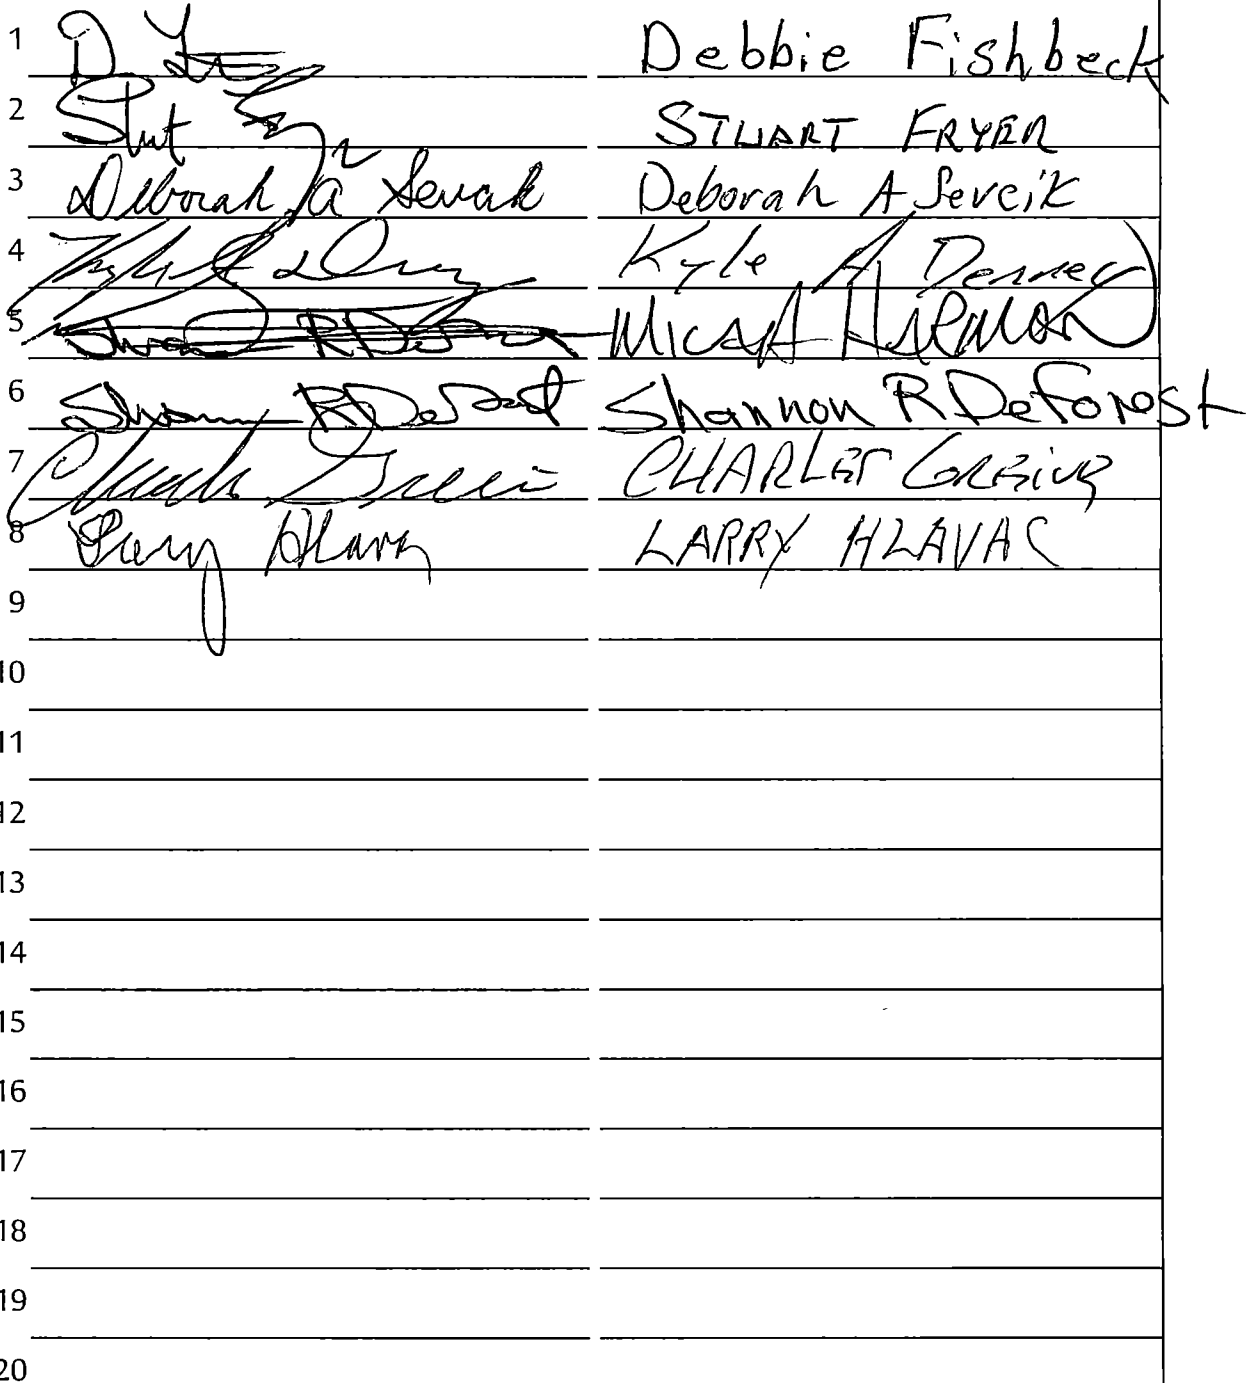 1 Debbie Fishbeck
2 STUART FRYER
3 Deborah A Sevcik Deborah A Sevcik
4 Kyle A Denney
5 MICAH HARMON
6 Shannon R DeForest Shannon R DeForest
7 CHARLES GREINER
8 Larry Hlavac LARRY HLAVAC
9
10
11
12
13
14
15
16
17
18
19
20